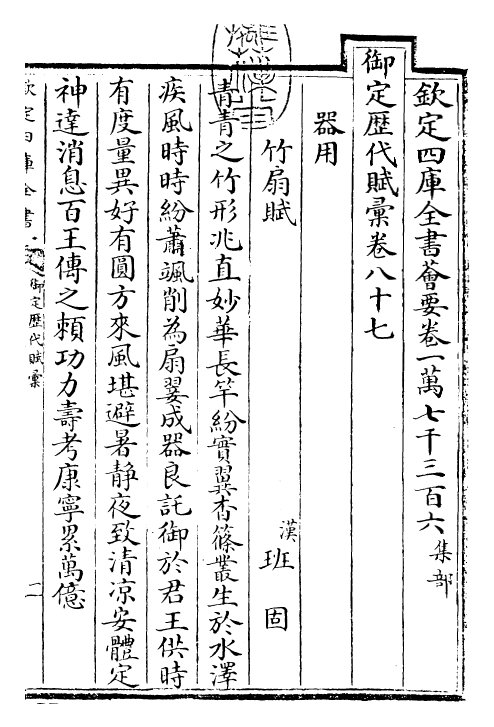 欽定四庫全書薈要卷一萬七千三百六 集部
御定歴代賦彙卷八十七
器用
竹扇賦 漢 班固
青青之竹形兆直妙華長竿紛實翼杳篠叢生於水澤
疾風時時紛蕭颯削為扇翣成器良託御於君王供時
有度量異好有圓方來風堪避暑静夜致清凉安體定
神達消息百王傳之賴功力壽考康寧累萬億
欽定四庫全書
御定歴代賦彙